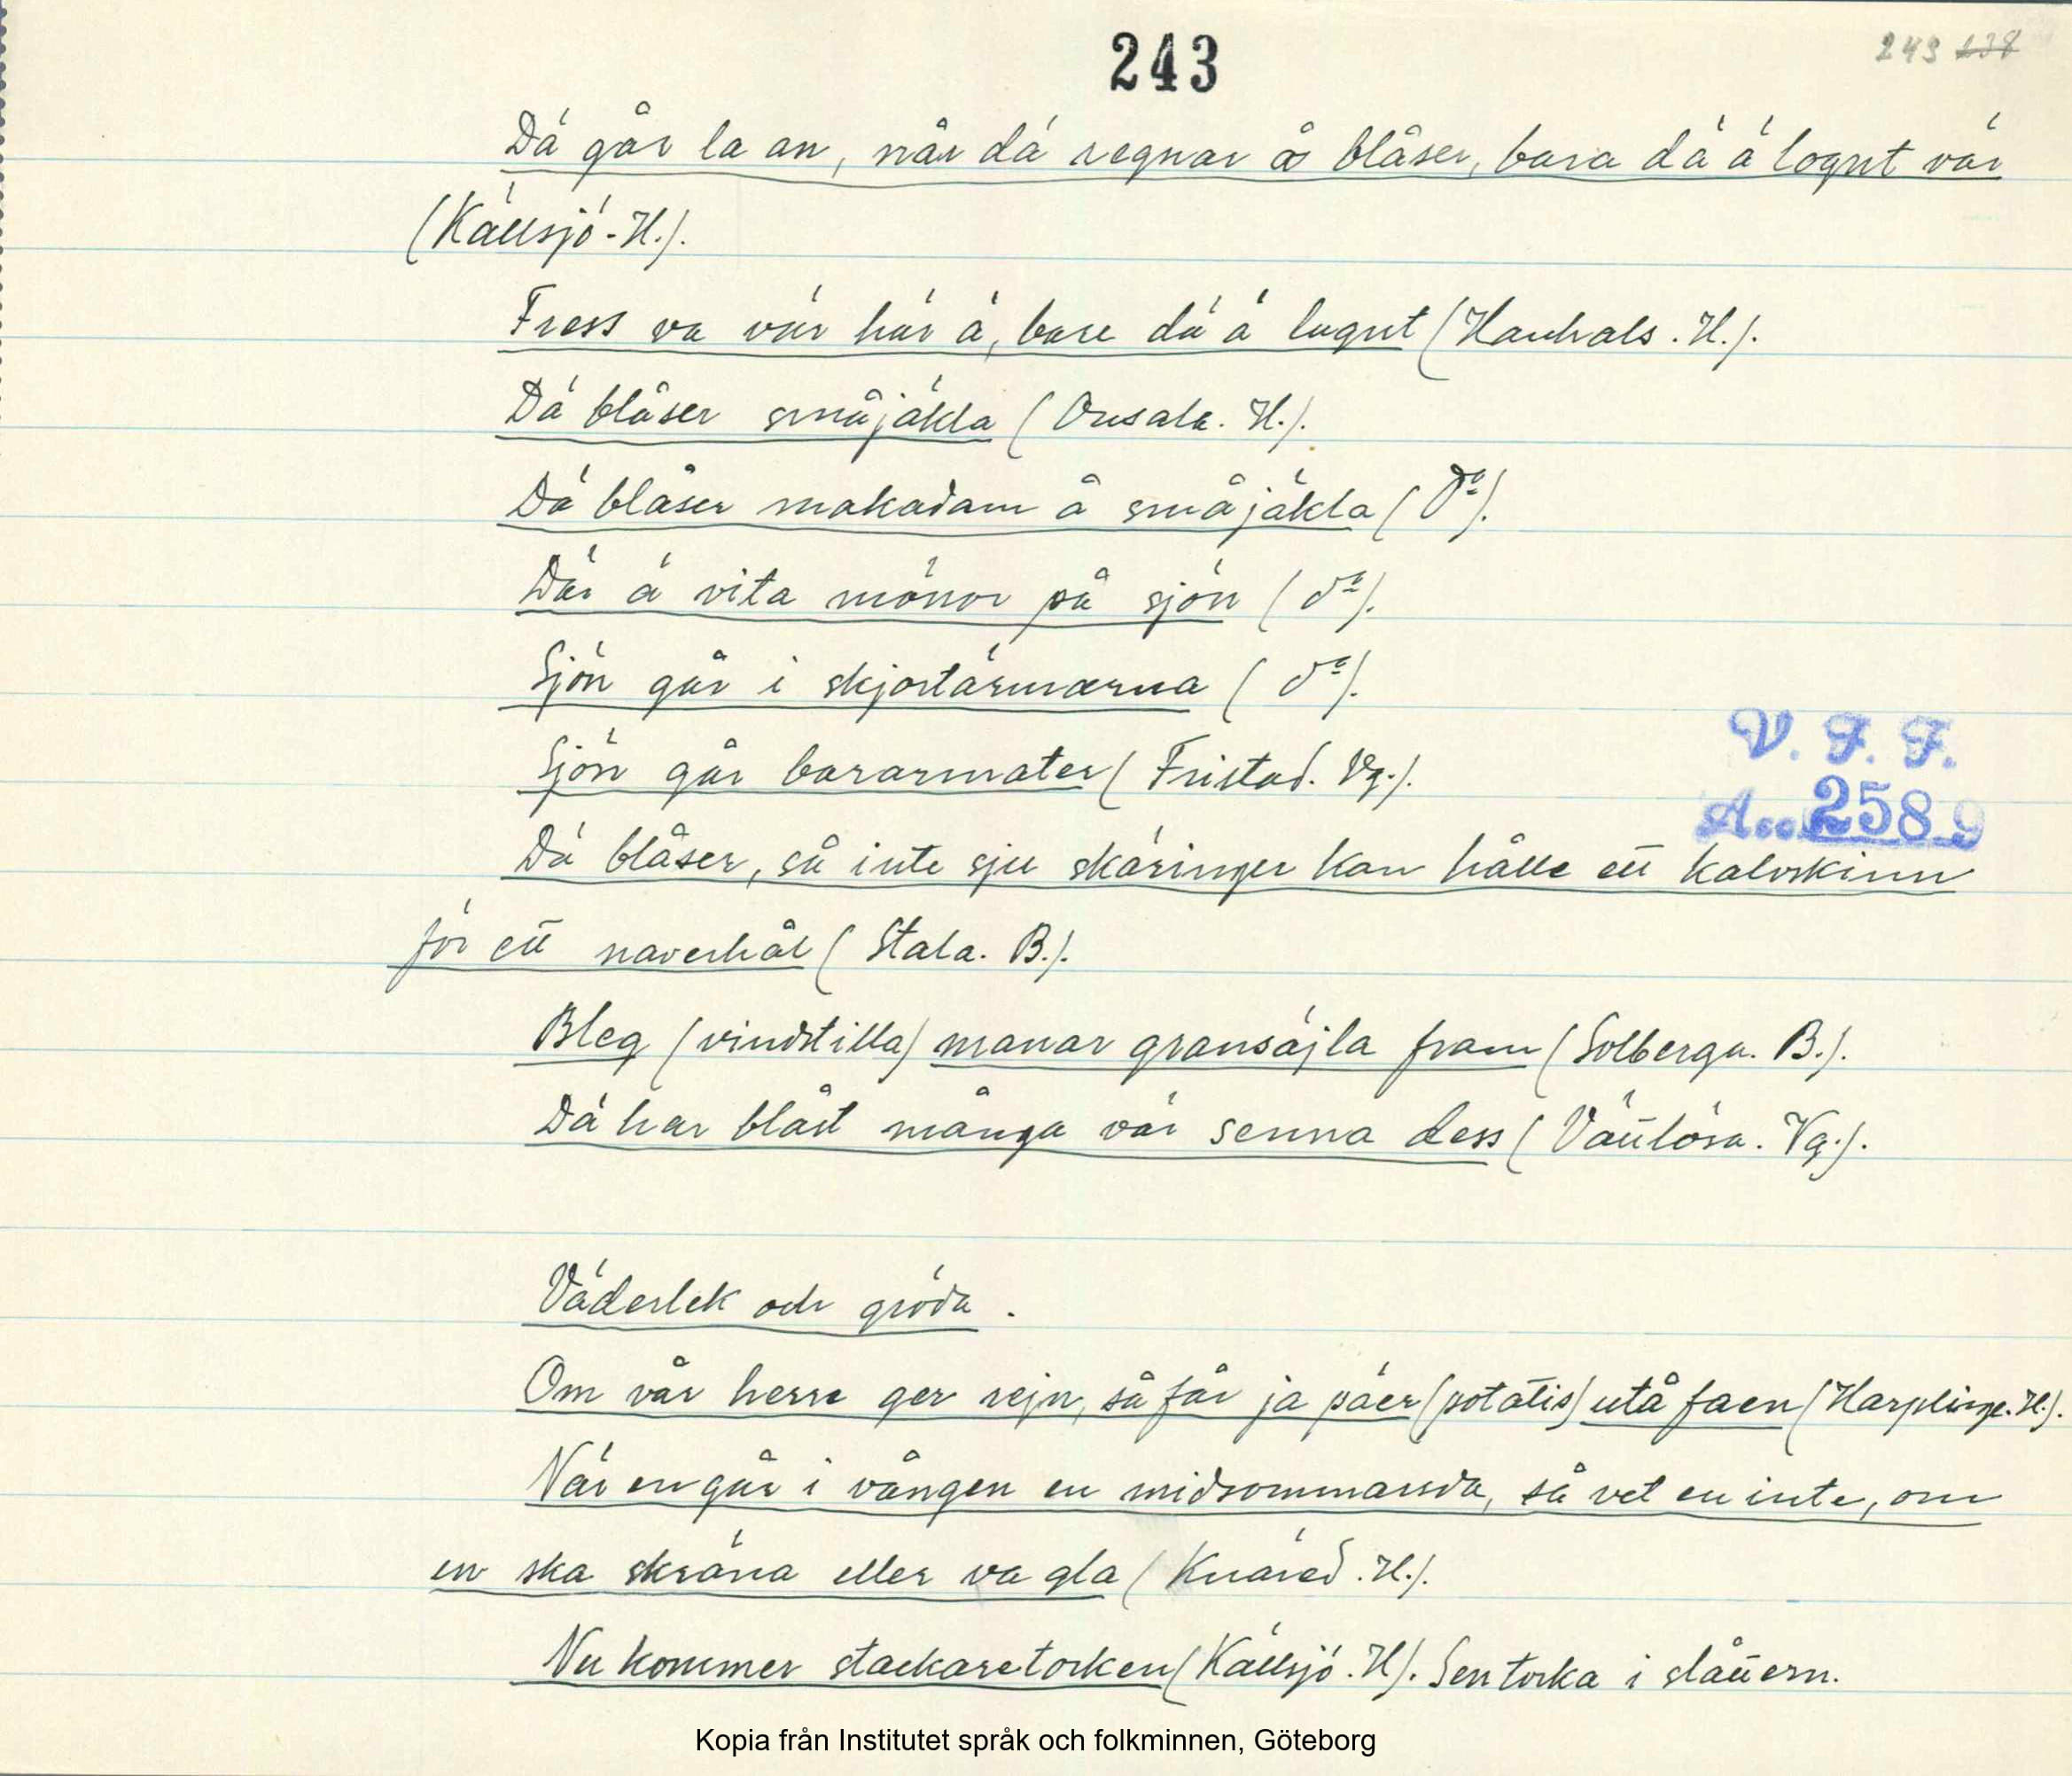 243
243 238
Dä går la an, når dä regnar å blåser, bara dä ä lognt vär
(Källsjö-H.).
Fress va vär här ä, bare dä ä lugnt (Hanhals. H.).
Dä blåser småjäkla (Onsala. H.).
Dä blåser makadam å småjäkla (Do).
Där ä vita mönor på sjön (do).
Sjön går i skjortärmarna (do).
Sjön går bararmater (Fristad. Vg.).
V. F. F.
Acc. 2589
Dä blåser, så inte sju skäringer kan hålle ett kalvskinn
för ett naverhål (Stala. B.).
Bleg (vindstilla) manar gransäjla fram (Solberga. B.).
Dä har blåst många vär senna dess (Vättlösa. Vg.).
Väderlek och gröda.
Om vår herre ger rejn, så får ja päer (potatis) utå faen (Harplinge. H.).
När en går i vången en midsommarsda, så vet en inte, om
en ska skräna eller va gla (Knäred. H.).
Nu kommer stackaretorken (Källsjö. H). Sen torka i slåttern.
Kopia från Institutet språk och folkminnen, Göteborg